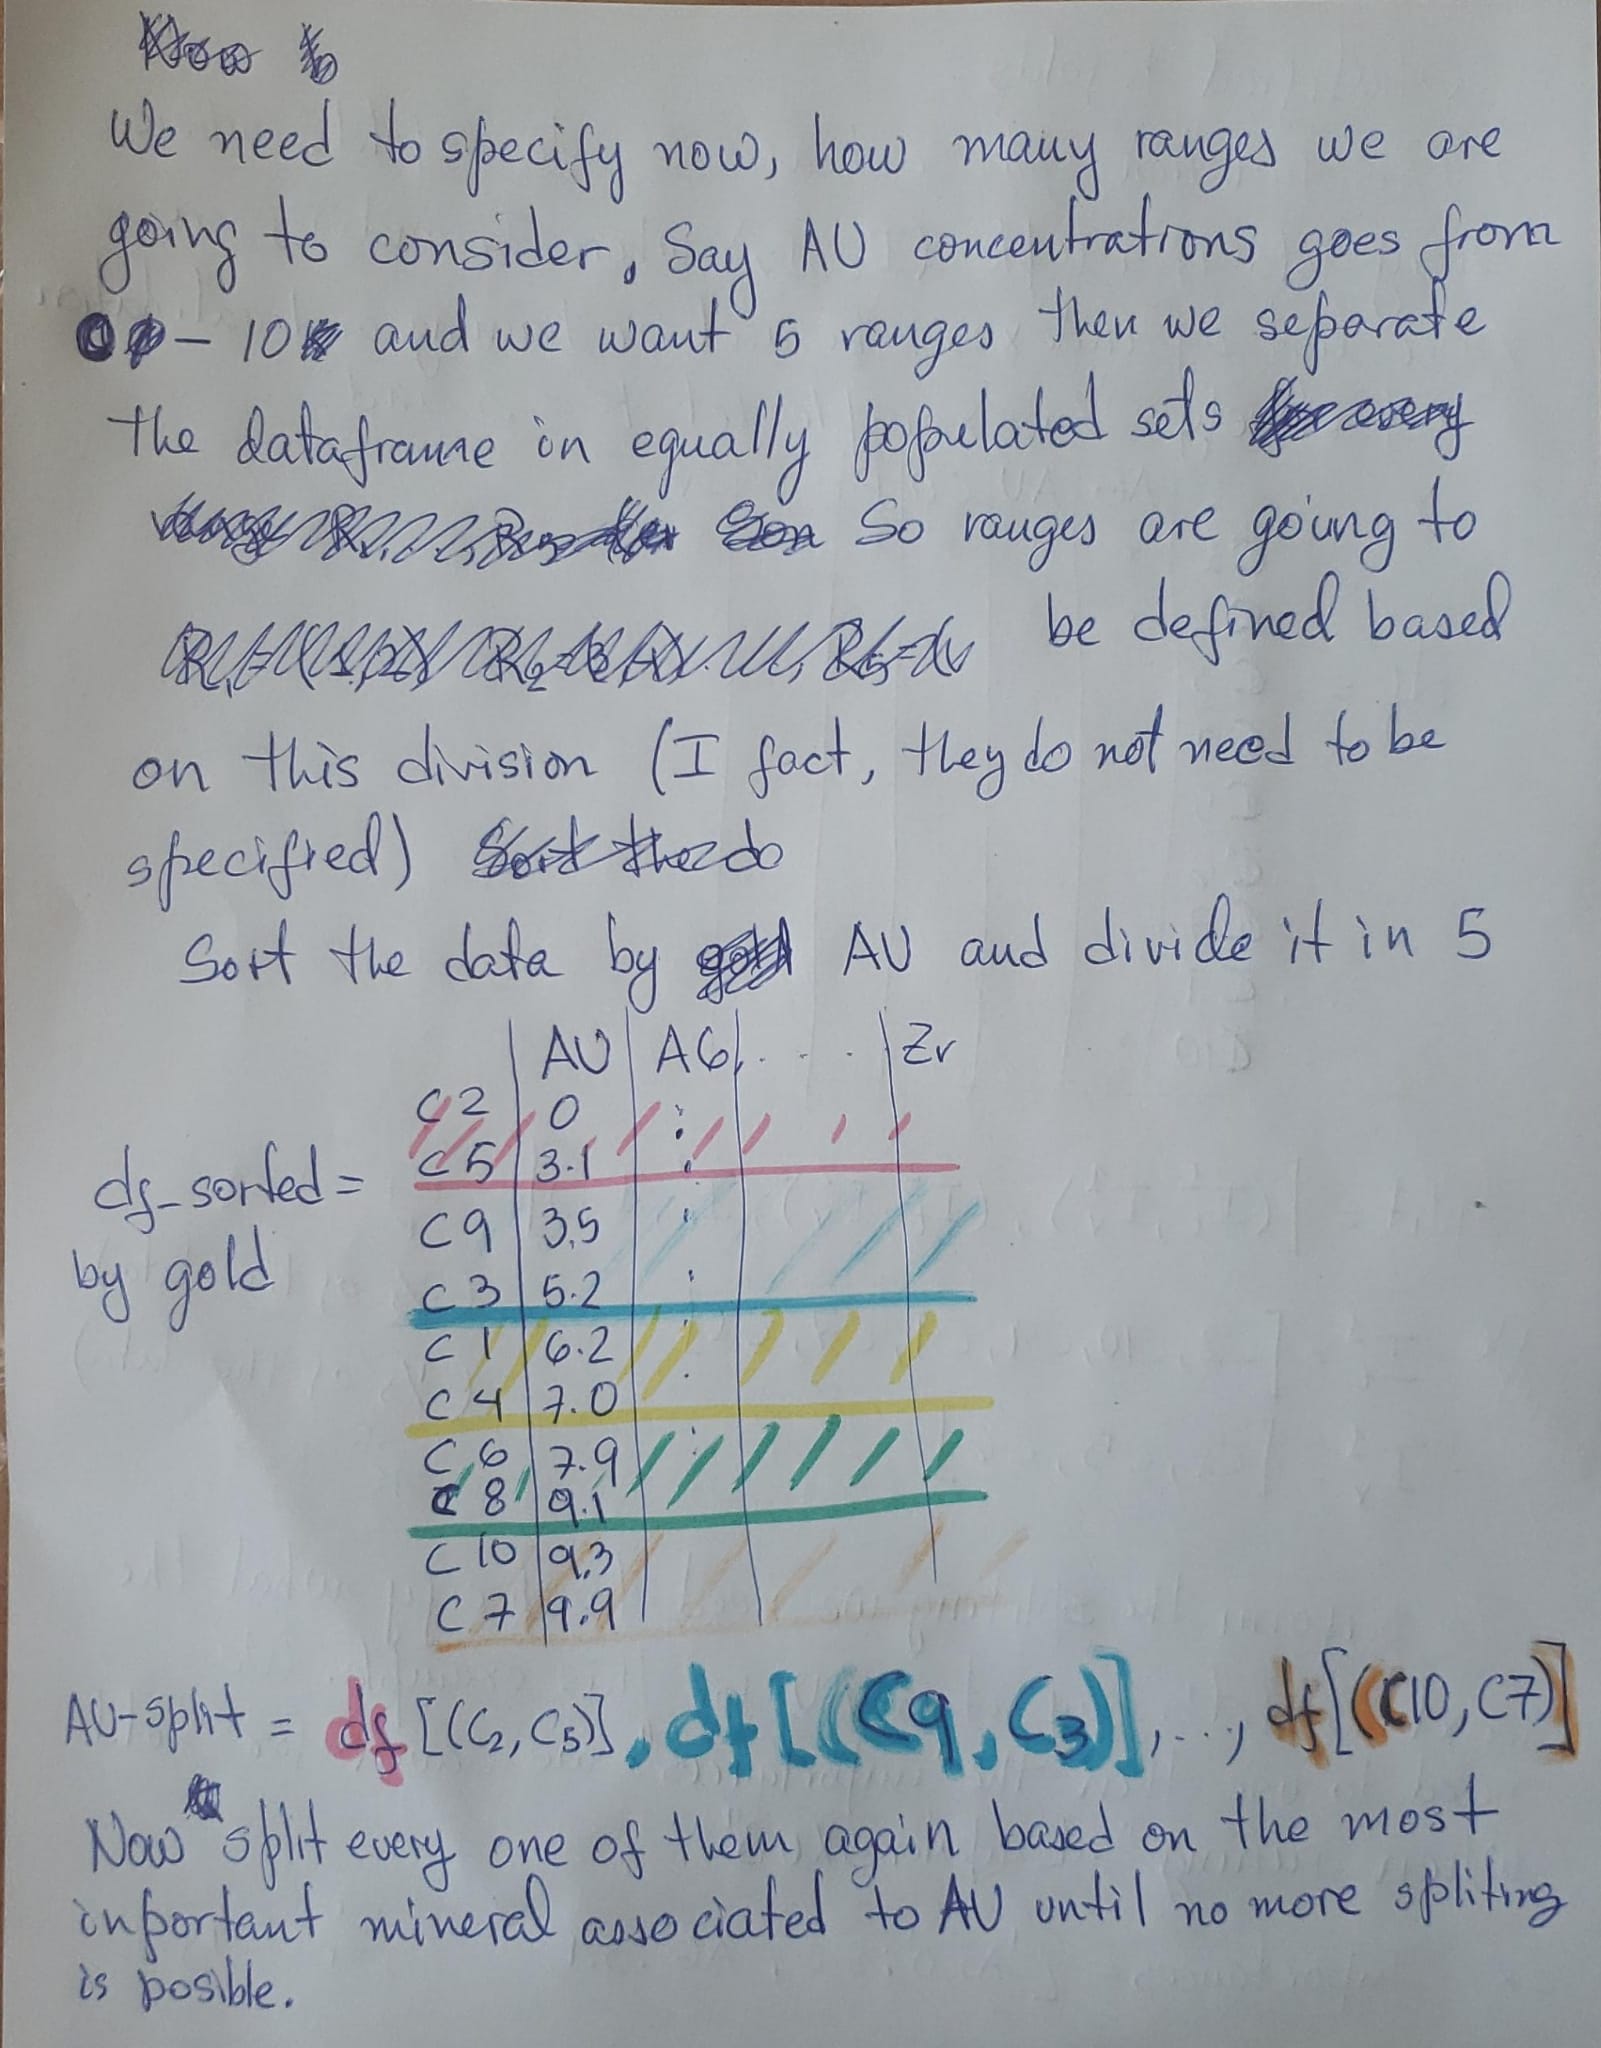 We need to specify now, how many ranges we are
going to consider, Say AU concentrations goes from
0 - 10 and we want 5 ranges then we separate
the dataframe in equally populated sets
So ranges are going to
be defined based
on this division (I fact, they do not need to be
specified)
Sort the data by AU and divide it in 5
AU AG . . . Zr
C2 0
C5 3.1
df_sorted =
C9 3,5
by gold
C3 5.2
C1 6.2
C4 7.0
C6 7.9
C8 9.1
C10 9,3
C7 9.9
AU-split = df [(C2, C5)], df [(C9, C3)], ..., df[(C10, C7)]
Now split every one of them again based on the most
inportant mineral associated to AU until no more spliting
is posible.